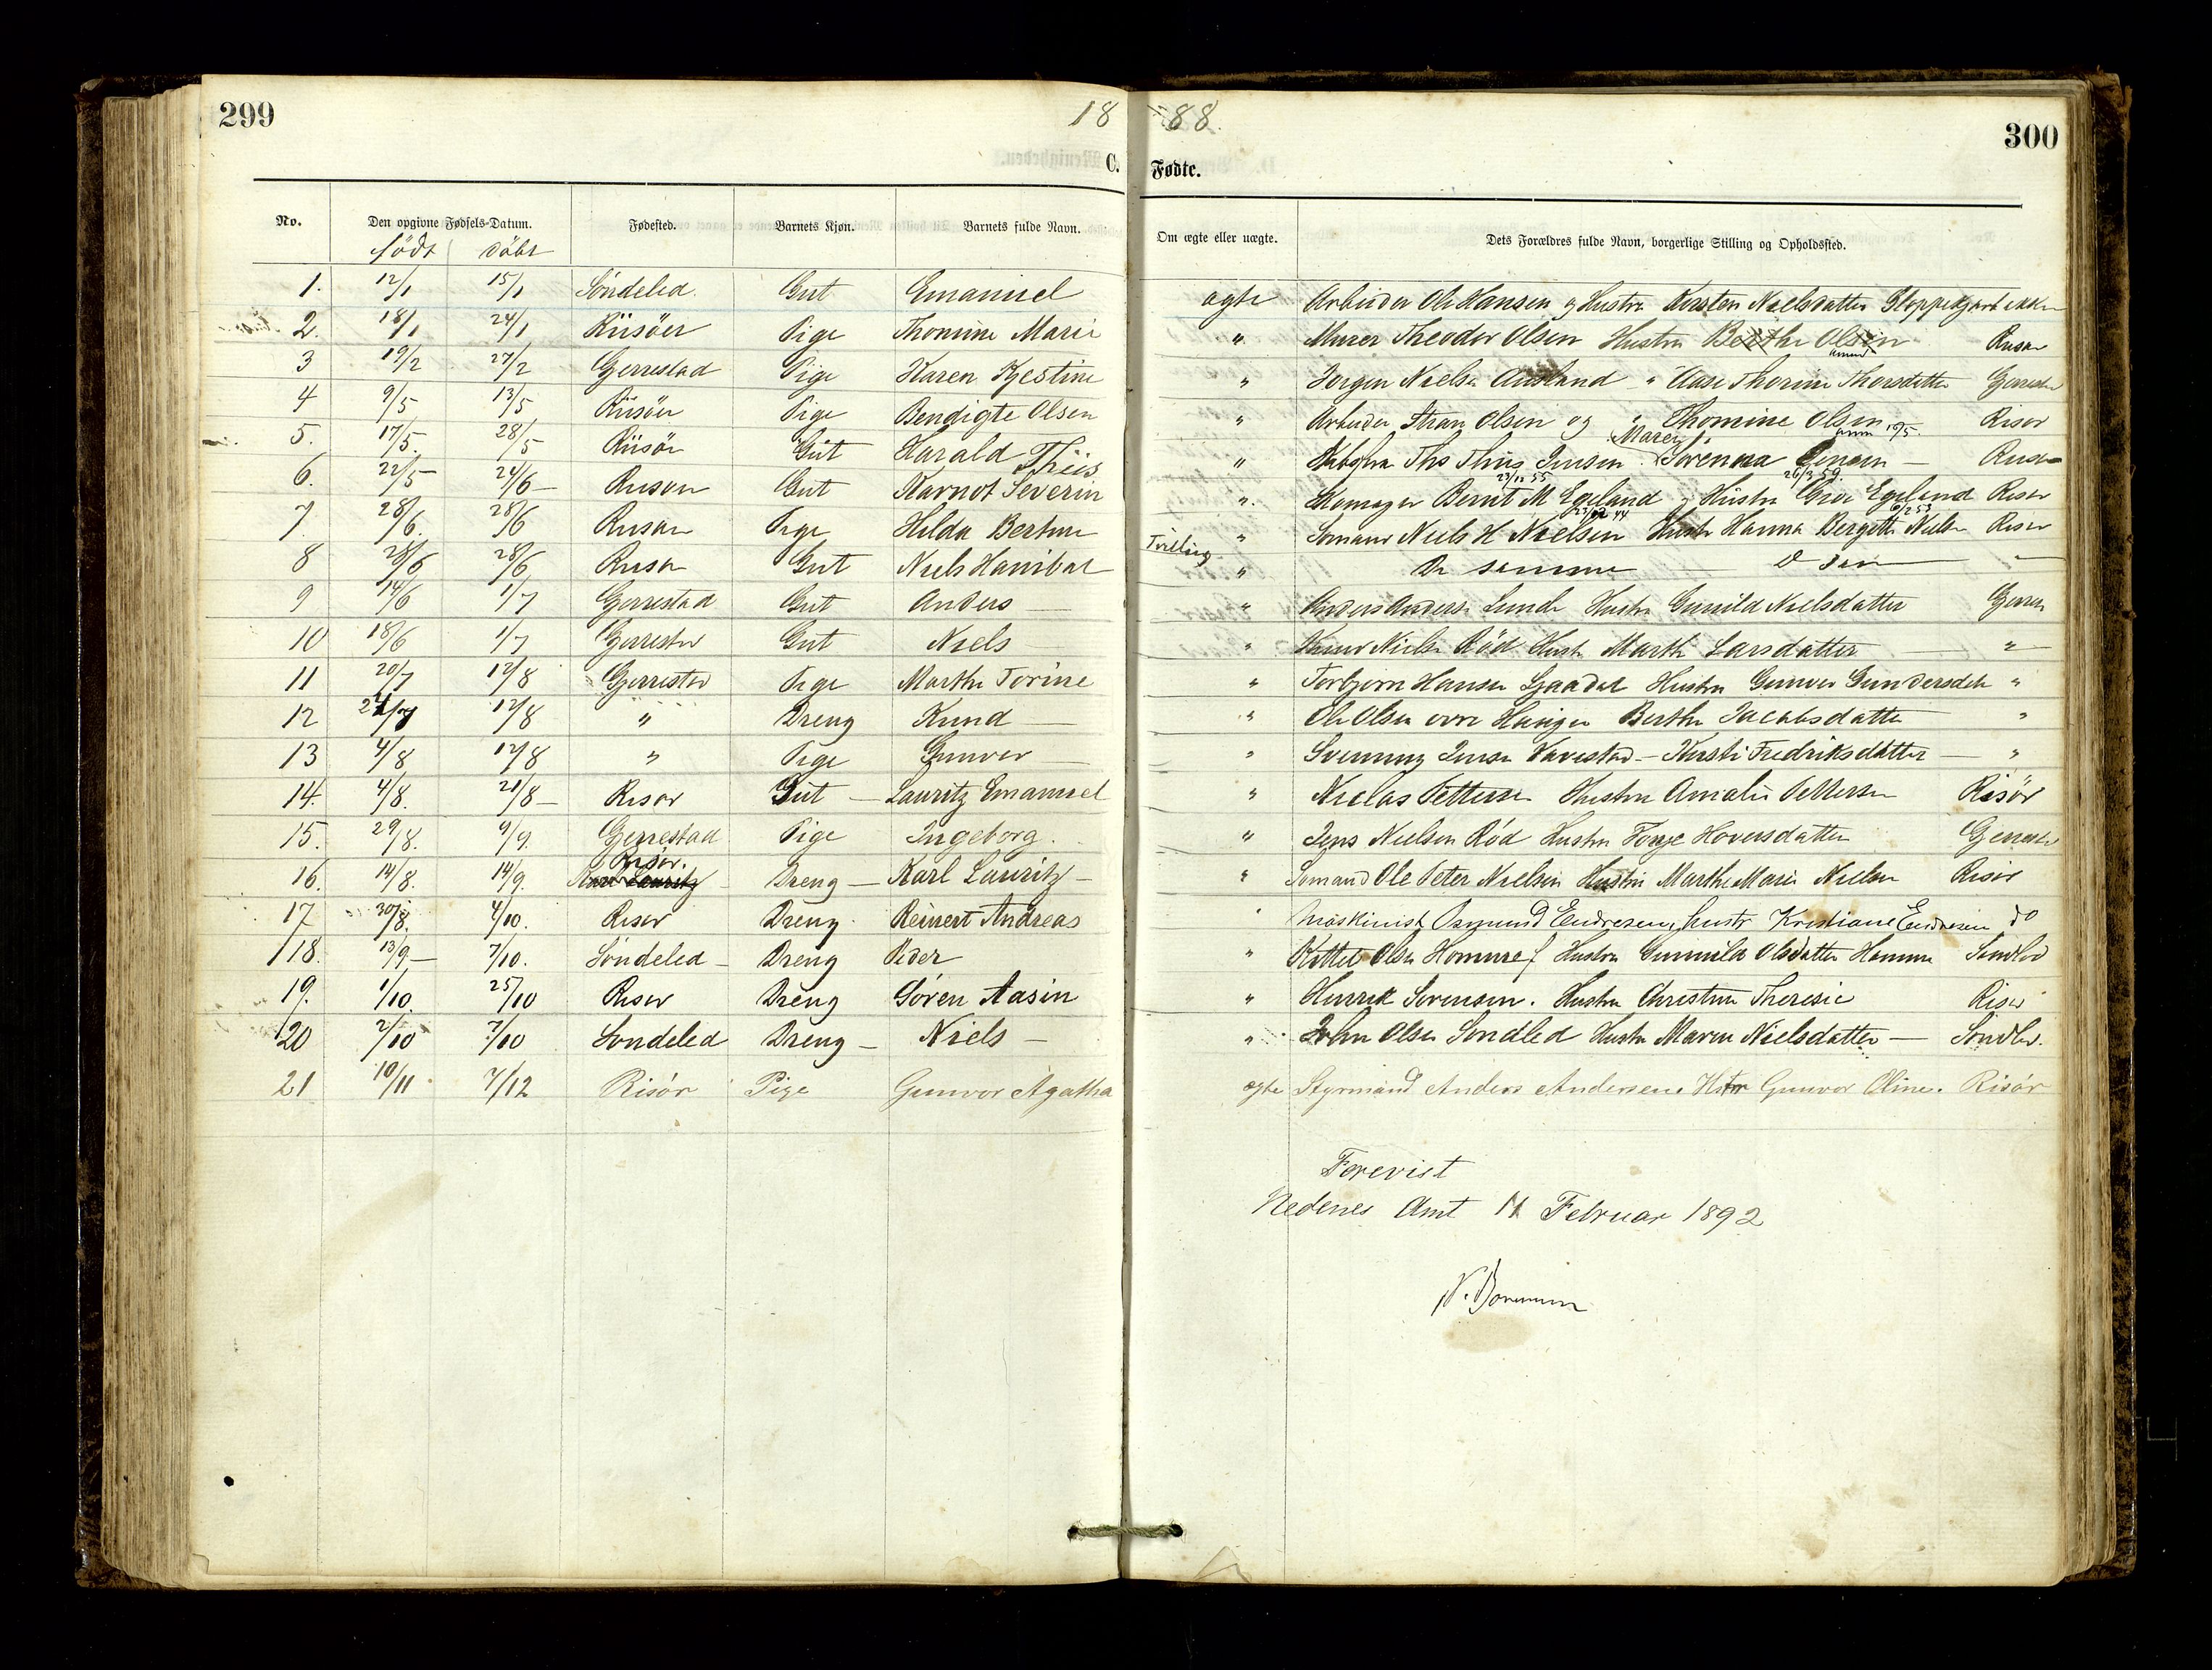 299
18 88.
300
C. Fødte.
No. Den opgivne Fødsels-Datum. Fødested. Barnets Kjøn. Barnets fulde Navn. Om ægte eller uægte. Dets Forældres fulde Navn, borgerlige Stilling og Opholdssted.
født døbt
1. 12/1 15/1 Søndeled. Gut Emanuel ægte Arbeider Ole Hansen og Hustru Kirsten Nielsdatter
2. 18/1 24/1 Riisöer Pige Thomine Marie " Murer Theodor Olsen Hustru Berthe Olsen Risør
3 19/2 27/2 Gerrestad Pige Karen Kjestine " Jørgen Nielsen Ausland " Aase Thorine Thorsdatter
4 9/5 13/5 Riisöer Pige Bendigte Olsen " Arbeider Olsen og " Thomine Olsen Risør
5. 17/5. 28/5 Riisör Gut Harald Thiis " Ths Thiis Jensen Maren Sørenna Jensen
6. 22/5 24/6 Gut Severin ". Bernt M Egeland og Hustru Egeland Risør
7 28/6. 28/6 Pige Hilda Bertine " Sømand Niels H Nielsen Hustr Hanna Bergitte Nielsen Risør
8 28/6 28/6 Gut Niels Hanibal Tvilling " De samme "
9 14/6 1/7 Gerrestad Gut Anders " Anders Anders. Lunde Hustru Gunild Nielsdatter
10 18/6 1/7 Gerrestad Gut Niels " Nielsen Rød Hustr Marthe Larsdatter "
11 20/7 12/8 Gerrestad Pige Marthe Torine " Torbjørn Hansen Hustru Gunver Gundersdatter "
12 12/8 " Dreng Knud " Ole Olsen Berthe Jacobsdatter "
13 4/8 12/8 " Pige Gunver " Svenning Jensen Vavestad - Kirsti Fredriksdatter "
14. 4/8. 21/8 Risør Gut Lauritz Emanuel " Niclas Pettersen Hustru Amalie Pettersen Risør
15. 29/8. 9/9. Gerrestad Pige Ingeborg. " Jens Nielsen Rød Hustru Torje Hoversdatter Gerrestad
16. 14/8. 14/9. Risør. Karl Lauritz Dreng Karl Lauritz " Sømand Ole Peter Nielsen Hustru Marthe Marie Nielsen Risør
17 30/8. 4/10. Risør Dreng Reinert Andreas " Maskinist Osmund Endresen, Hustr Kristiane Endresen do
18. 13/9 7/10. Søndeled Dreng Peder " Kittel Olsen Homme Hustru Gunnild Olsdatter Homme
19. 1/10. 25/10 Risør Dreng Søren Aasin " Henrik Sørensen. Hustru Christine Theresie Risør
20 2/10 7/10 Søndeled Dreng Niels " John Olsen Søndled Hustr Maren Nielsdatter
21 10/11. 7/12 Risör Pige Gunvor Agatha ægte Styrmand Anders Andersen. Hstr Gunvor Oline. Risör
Forevist
Nedenes Amt 11 Februar 1892